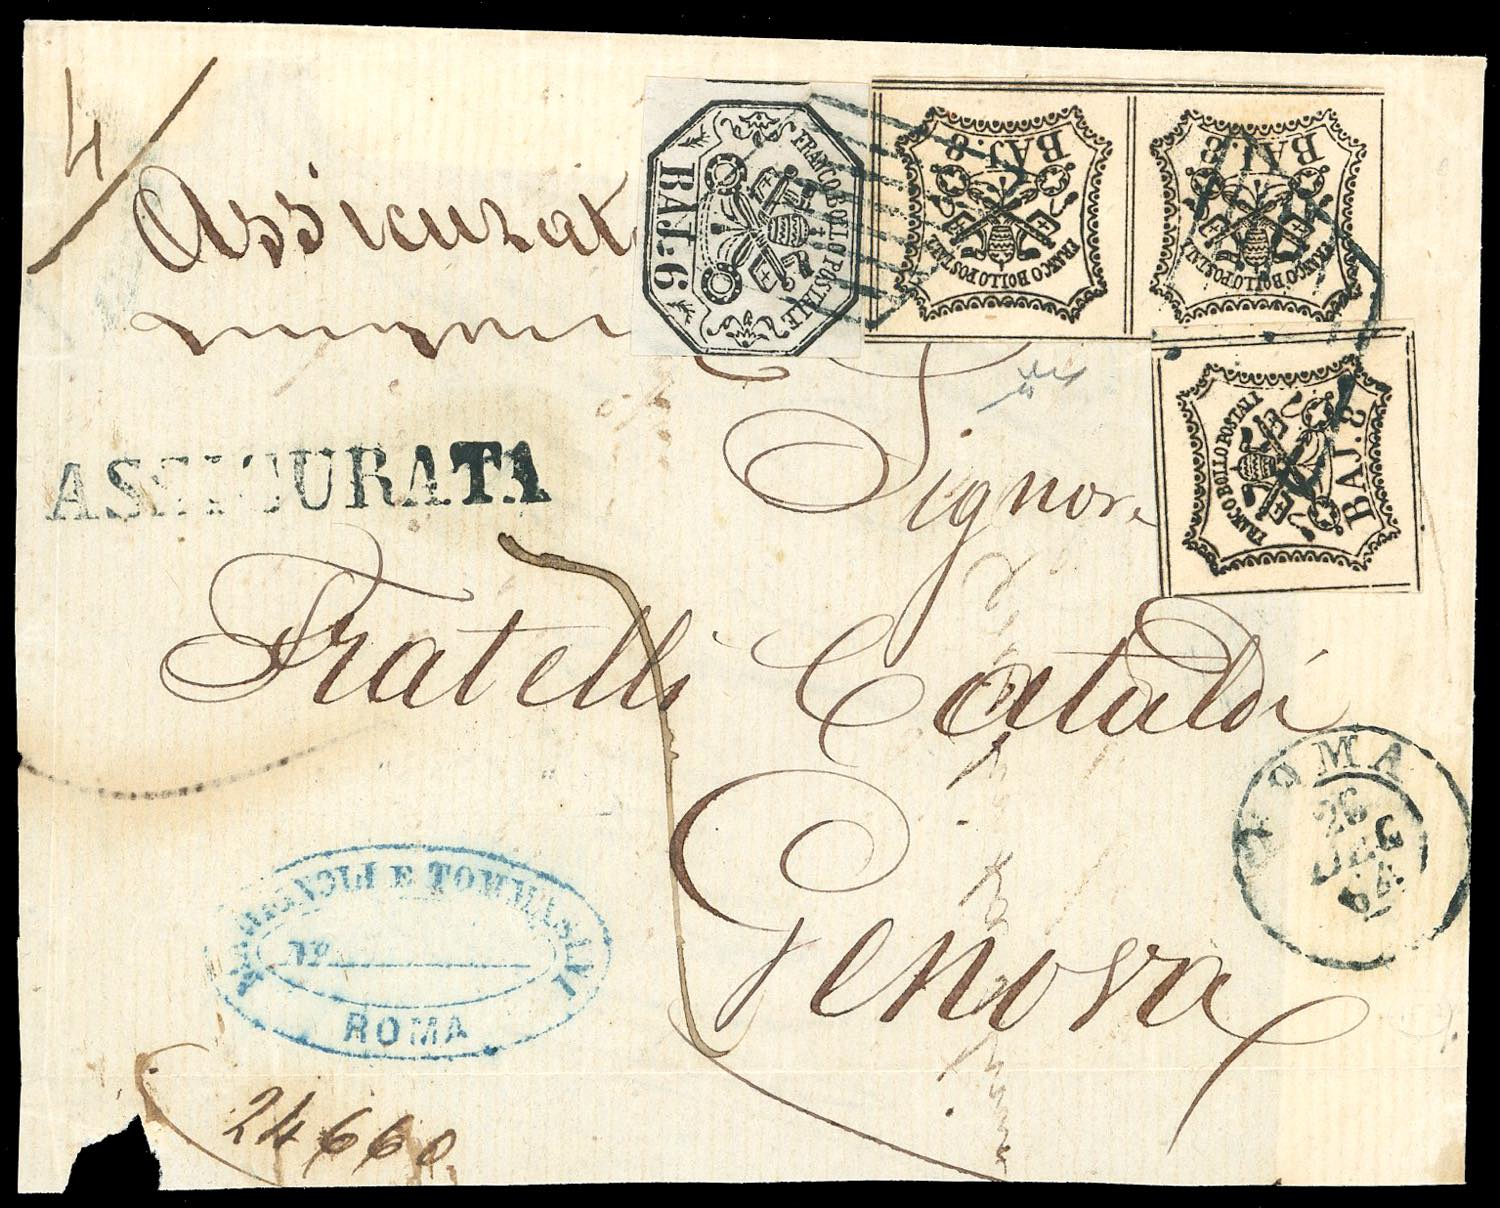 4/
Assicurat
FRANCO BOLLO POSTALE
BAJ: 6
BAJ. 8
FRANCO BOLLO POSTALE
BAJ. 8
FRANCO BOLLO POSTALE
BAJ. 8
FRANCO BOLLO POSTALE
ASSICURATA
Signore
Fratelli Cataldi
Genova
ROMA
26
DEC
64
E TOMMASINI
No
ROMA
24660